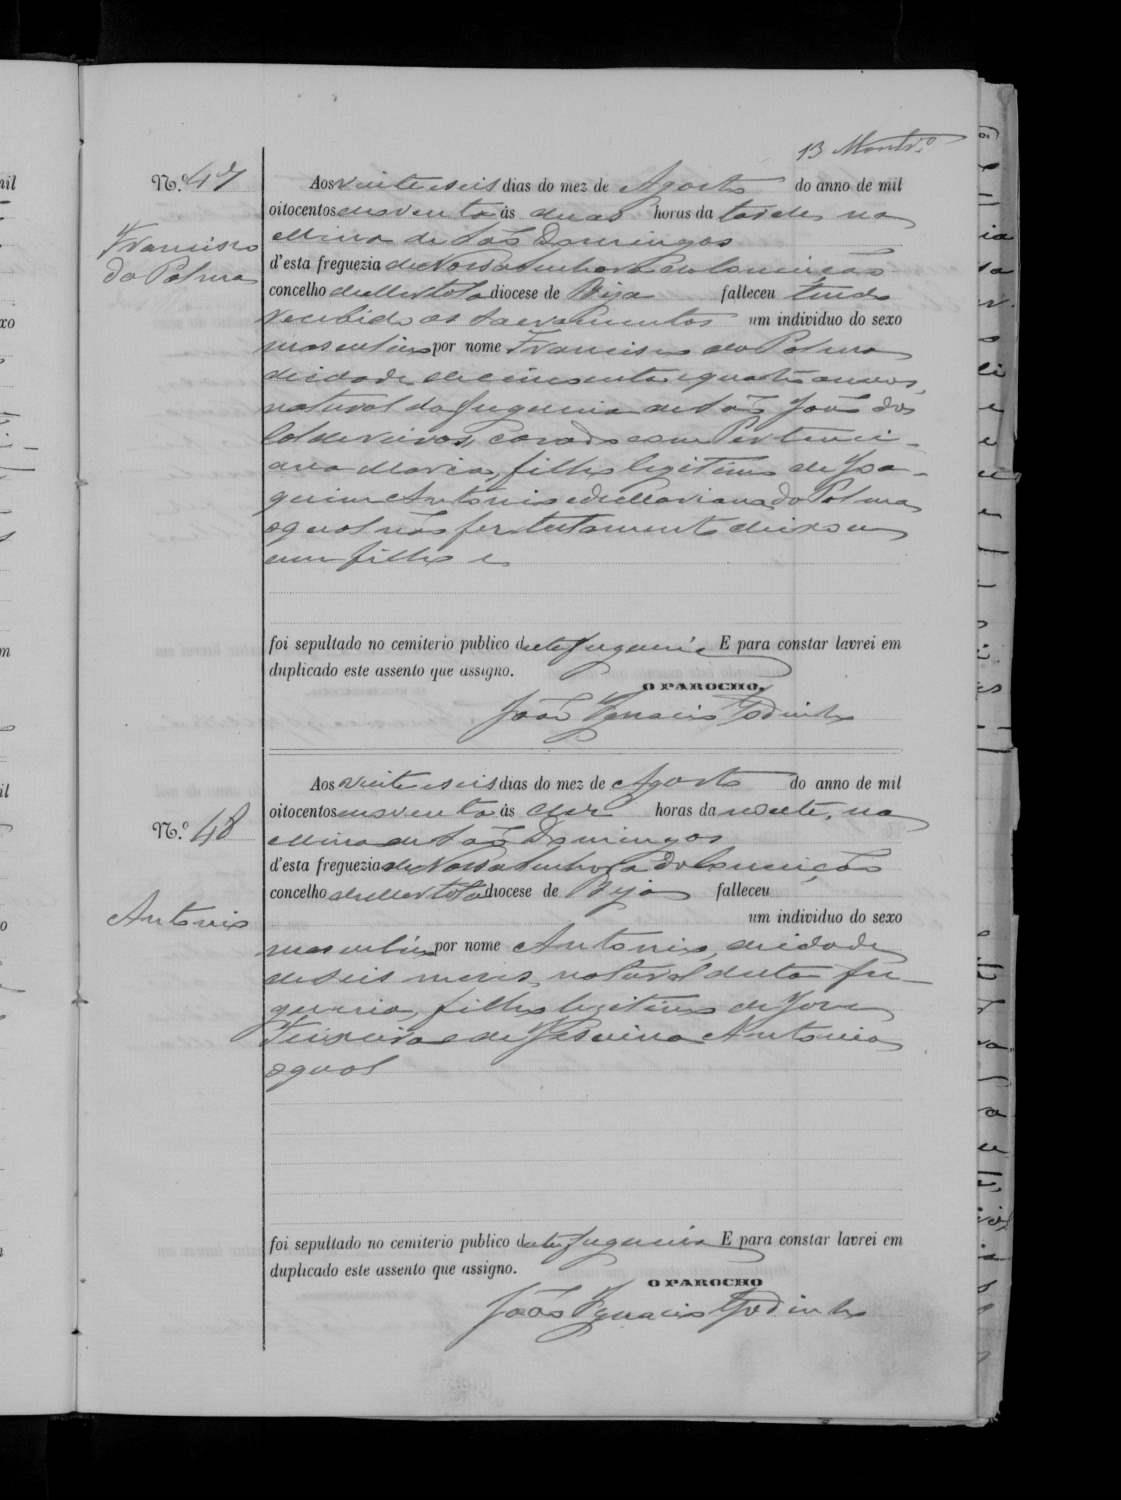 13 Montr.º
N.º 47
Francisco
da Palma
Aos vinte e seis dias do mez de Agosto do anno de mil
oitocentos e noventa ás duas horas da tarde, na
Mina de São Domingos
d'esta freguezia de Nossa Senhora da Conceição
concelho de Mertola diocese de Beja falleceu tendo
recebido os sacramentos um individuo do sexo
masculino por nome Francisco da Palma
de idade de cincoenta e quatro annos,
natural da freguezia de São João dos
Caldeireiros, casado com
Maria, filho legitimo de Joa-
quim Antonio e de Marianna da Palma
o qual não fez testamento deixou
um filho e
foi sepultado no cemiterio publico d'esta freguezia E para constar lavrei em
duplicado este assento que assigno.
O PAROCHO,
João Ignacio Godinho
N.º 48
Antonio
Aos vinte e seis dias do mez de Agosto do anno de mil
oitocentos noventa ás dez horas da noute, na
Mina de São Domingos
d'esta freguezia de Nossa Senhora da Conceição
concelho de Mertola diocese de Beja falleceu
um individuo do sexo
masculino por nome Antonio, de idade
de seis mezes, natural desta fre-
guezia, filho legitimo de José
Teixeira e de Jesuina Antonia
o qual
foi sepultado no cemiterio publico d'esta freguezia E para constar lavrei em
duplicado este assento que assigno.
O PAROCHO
João Ignacio Godinho